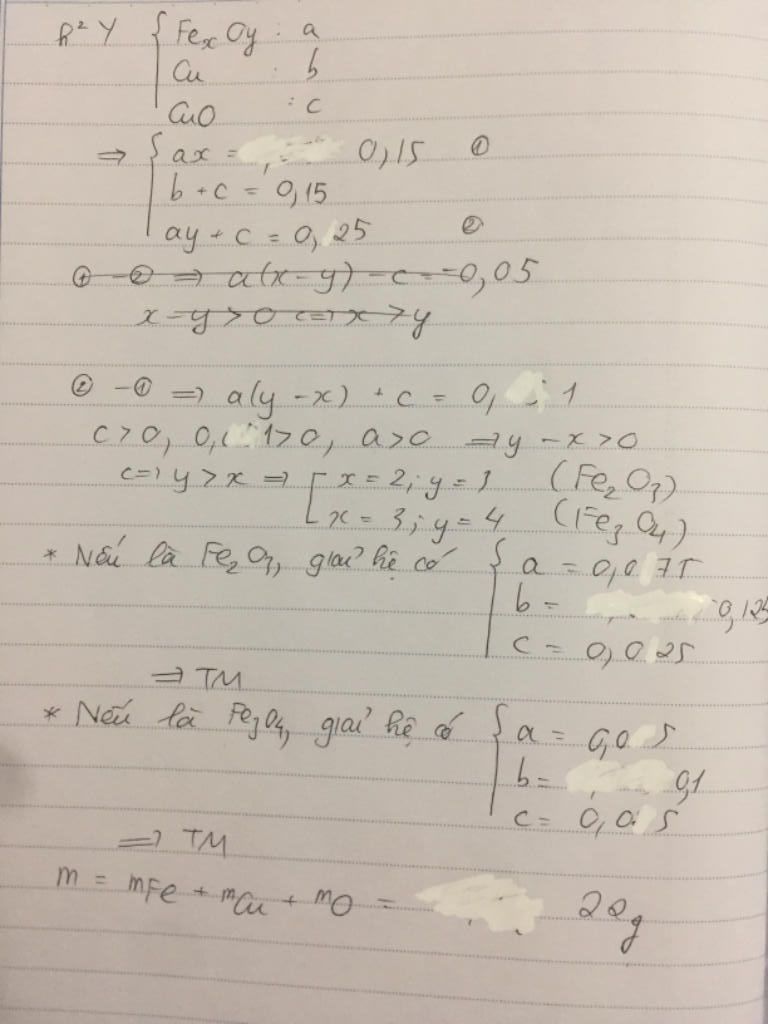 h² Y { FexOy : a
Cu : b
CuO : c
⇒ { ax = 0,15 ①
b + c = 0,15
ay + c = 0,25 ②
① - ② ⇒ a(x-y) - c = -0,05
x - y > 0 <=> x > y
② - ① ⇒ a(y - x) + c = 0,1
c > 0, 0,1 > 0, a > 0 ⇒ y - x > 0
<=> y > x ⇒ [ x = 2; y = 3 (Fe2O3)
x = 3; y = 4 (Fe3O4)
* Nếu là Fe2O3, giải hệ có { a = 0,075
b = 0,125
c = 0,025
⇒ TM
* Nếu là Fe3O4, giải hệ có { a = 0,05
b = 0,1
c = 0,05
⇒ TM
m = mFe + mCu + mO = 22g